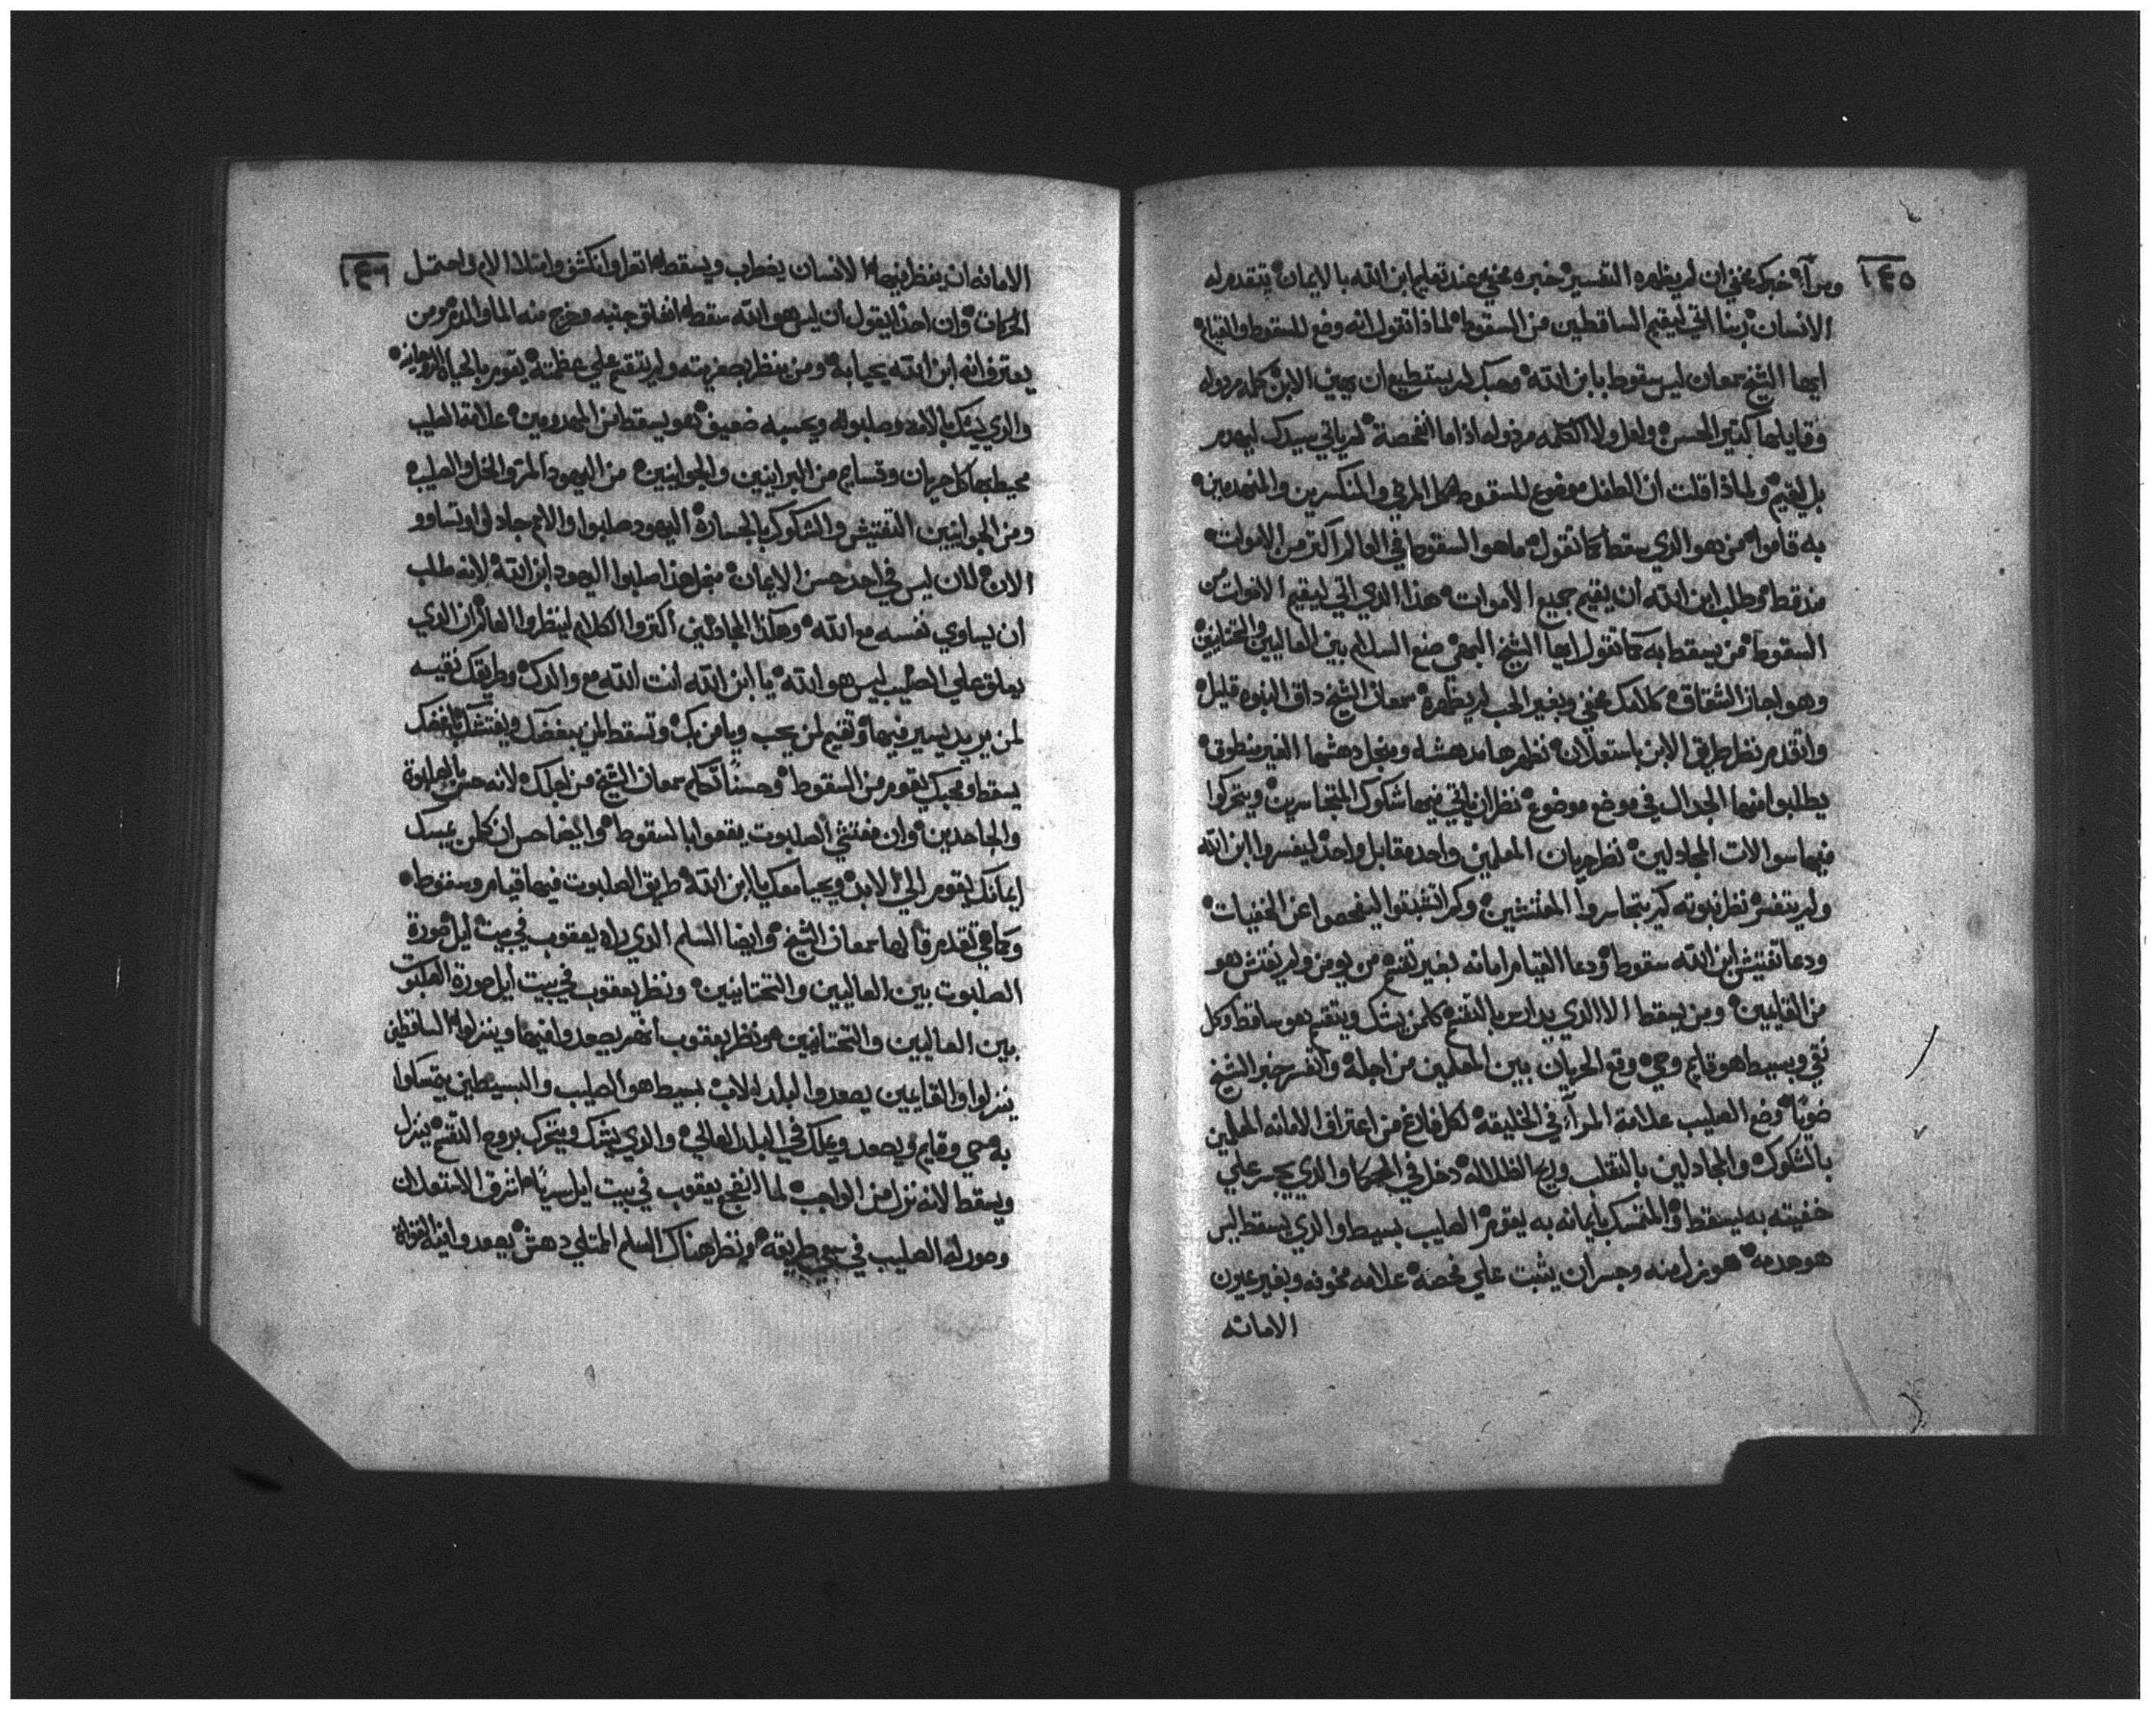 ١٤٥
ومرآ خبرك مخفي ان لم يظهره التفسير خبره مخفي عند تعليم ابن الله بالايمان يتقدم له
الانسان ربنا اتي ليقيم الساقطين من السقوط لماذا تقول انه وضع للسقوط والقيام
ايها الشيخ سمعان ليس سقوط بابن الله وحبك لم يستطيع ان يهين الابن كلمه مردوله
وقايلها كتير الحسن ولعل ولا الكلمه مردوله اذا ما انفحصة لم ياتي سيدك ليهدم
بل ليقيم ولماذا قلت ان الطفل موضوع للسقوط كل المرضي والمنكسرين والمنهدمين
به قاموا من هو الدي سقط كما تقول ما هو السقوط في العالم اكتر من الاموات
منذ قط وطلب ابن الله ان يقيم جميع الاموات هذا الدي اتي ليقيم الاموات من
السقوط من يسقط به كما تقول ايها الشيخ البهي صنع السلام بين العاليين والتحتانيين
وهو اجاز الشقاق كلامك مخفي وبغير الحب لم يظهره سمعان الشيخ داق النبوه قليل
واتقدم نظر طريق الابن باستعلان نظرها مدهشه ومنجل دهشها الغير منطوق
يطلبوا منها الجدال في موضع موضوع نظر ان ياتي فيها شكوك المتجاسرين ويتحركوا
فيها سوالات المجادلين نظر حربان المعلمين واحد مقابل واحد ليفسروا ابن الله
ولم يتفسر نظر نبوته كم يتجاسروا المفتشين وكم اتشبتوا ليفحصوا عن الخفيات
ودعا تفتيش ابن الله سقوط ودعا القيام امانه بغير تقنع من يومن ولم يفتش هو
من القايمين ومن يسقط الا الدي يدارس بالتقنع كلمن يشك ويتقنع هو ساقط وكل
نقي وبسيط هو قايم وحي وقع الحربان بين المعلمين من اجله واتفسر خبر الشيخ
ضويا وضع الصليب علامة المرآ في الخليقه لكل فارغ من اعتراف الامانه المعلمين
بالشكوك والمجادلين بالتقلب وريح الظلاله دخل في الحكما والدي يجسر علي
خفيته به يسقط والمتمسك بايمانه به يقوم الصليب بسيط والدي يسقط ليس
هو هدمه هو نزل منه وجسر ان يتبت علي فحصه علامه مخوفه وبغير عيون
الامانه
١٤٦
الامانه ان ينظر فيها الانسان يضطرب ويسقط اتعرا وانكشف وامتلا الام واحتمل
الحركات وان احدا يقول ان ليس هو الله سقط انفلق جنبه وخرج منه الما والدم ومن
يعترف انه ابن الله يحيا به ومن ينظر بصغريته ولم يتقنع علي عظمته يقوم بالحياه الروحانيه
والدي يشك بالامه وصلبوته ويحسبه ضعيف هو يسقط من المهدومين علامة الصليب
محيط بها كل حربان وقسايم من البرانيين والجوانيين من اليهود المر والخل والصليب
ومن الجوانيين التفتيش والشكوك بالجساره اليهود صلبوا والامم جادلوا وتساوو
الان لان ليس في احد حسن الايمان منجل هذا صلبوا اليهود ابن الله لانه طلب
ان يساوي نفسه مع الله وهكذا المجادلين اكتروا الكلام لينظروا العالم ان الدي
تعلق علي الصليب ليس هو الله يا ابن الله انت الله مع والدك وطريقك نقيه
لمن يريد يسير فيها وتقيم لمن يحب ويامن بك وتسقط لمن يبغضك ويفتشك باغضك
يسقط ومحبك يقوم من السقوط وحسنًا تكلم سمعان الشيخ من اجلك لانه حس بالصلبوة
والجاحدين وان مفتشي الصلبوت يقعوا بالسقوط وايضا حس ان كلمن يمسك
ايمانك يقوم الي الابد ويحيا معك يا ابن الله طريق الصلبوت فيها قيام وسقوط
وكما هي تقدم قالها سمعان الشيخ وايضا السلم الدي راه يعقوب في بيت ايل صورة
الصلبوت بين العاليين والتحتانيين ونظر يعقوب في بيت ايل صورة الصلبوت
بين العاليين والتحتانيين ونظر يعقوب انهم يصعدوا فيها وينزلوا الساقطين
ينزلوا والقايمين يصعدوا لبلد الاب بسيط هو الصليب والبسيطين يتمسكوا
به حي وقايم ويصعد ويملك في البلد العالي والدي يشك ويتحرك بروح التقنع ينزل
ويسقط لانه نزل من الواجب لما انضجع يعقوب في بيت ايل سريًا اشرق الاستعلان
وصور له الصليب في سعي طريقه ونظر هناك السلم الممتلي دهش يصعدوا فيه